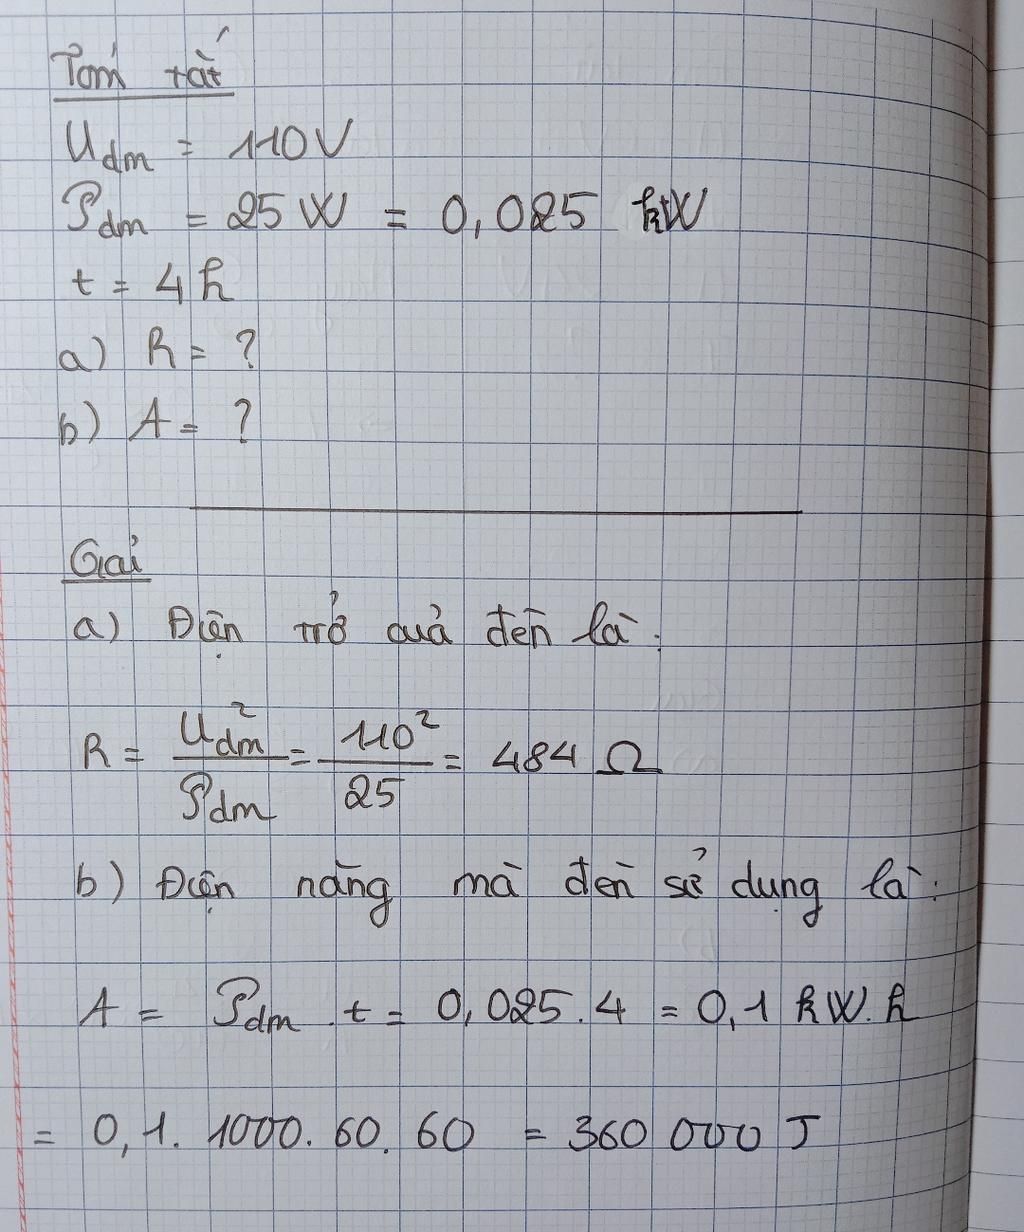 Tóm tắt
Uđm = 110V
Pđm = 25 W = 0,025 kW
t = 4h
a) R = ?
b) A = ?
Giải
a) Điện trở quả đèn là:
R = Uđm² / Pđm = 110² / 25 = 484 Ω
b) Điện năng mà đèn sử dụng là:
A = Pđm . t = 0,025 . 4 = 0,1 kW.h
= 0,1. 1000. 60. 60 = 360 000 J